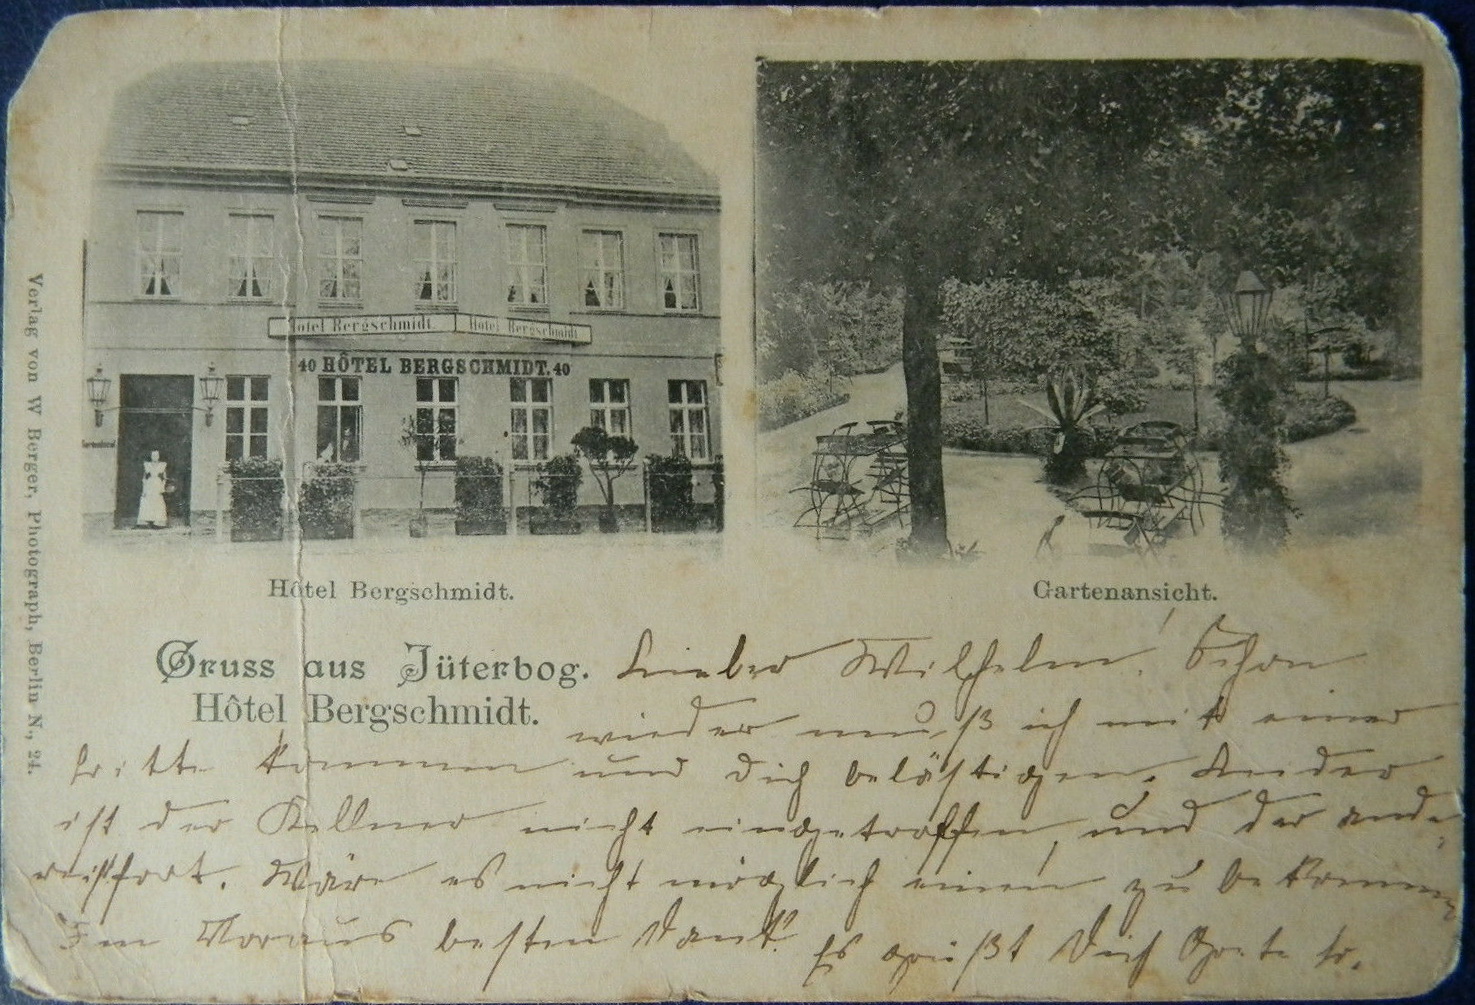 Hotel Bergschmidt. Hotel Bergschmidt.
40 HÔTEL BERGSCHMIDT. 40
Hôtel Bergschmidt.
Gartenansicht.
Verlag von W Berger, Photograph, Berlin N., 24.
Gruss aus Jüterbog.
Hôtel Bergschmidt.
Lieber Wilhelm! Schon
wieder muß ich mit einer
Bitte kommen und dich belästigen. Leider
ist der Kellner nicht eingetroffen, und der andere
ist fort. Wäre es nicht möglich einen zu bekommen
Im Voraus besten Dank! Es grüßt Dich